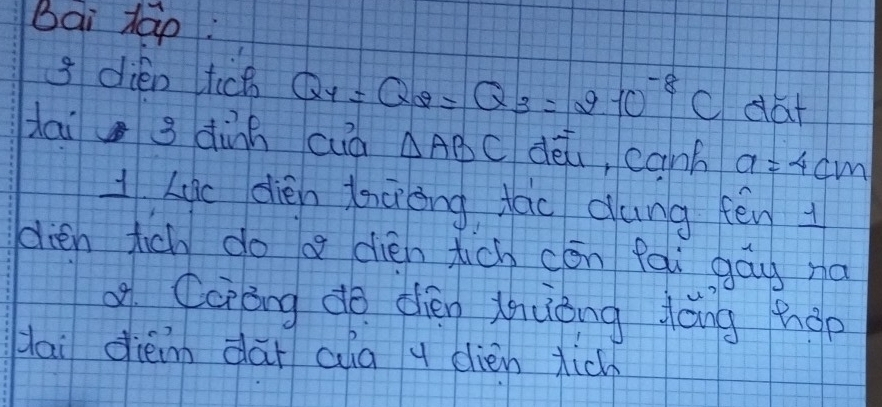 Bài tập :
3 điện tích Q1 = Q2 = Q3 = 2.10^-8 C đặt
tại 3 đỉnh của ΔABC đều, cạnh a = 4cm
1. Lực điện trường tác dụng lên 1
điện tích do 2 điện tích còn lại gây ra
2. Cường độ điện trường tổng hợp
tại điểm đặt của 1 điện tích